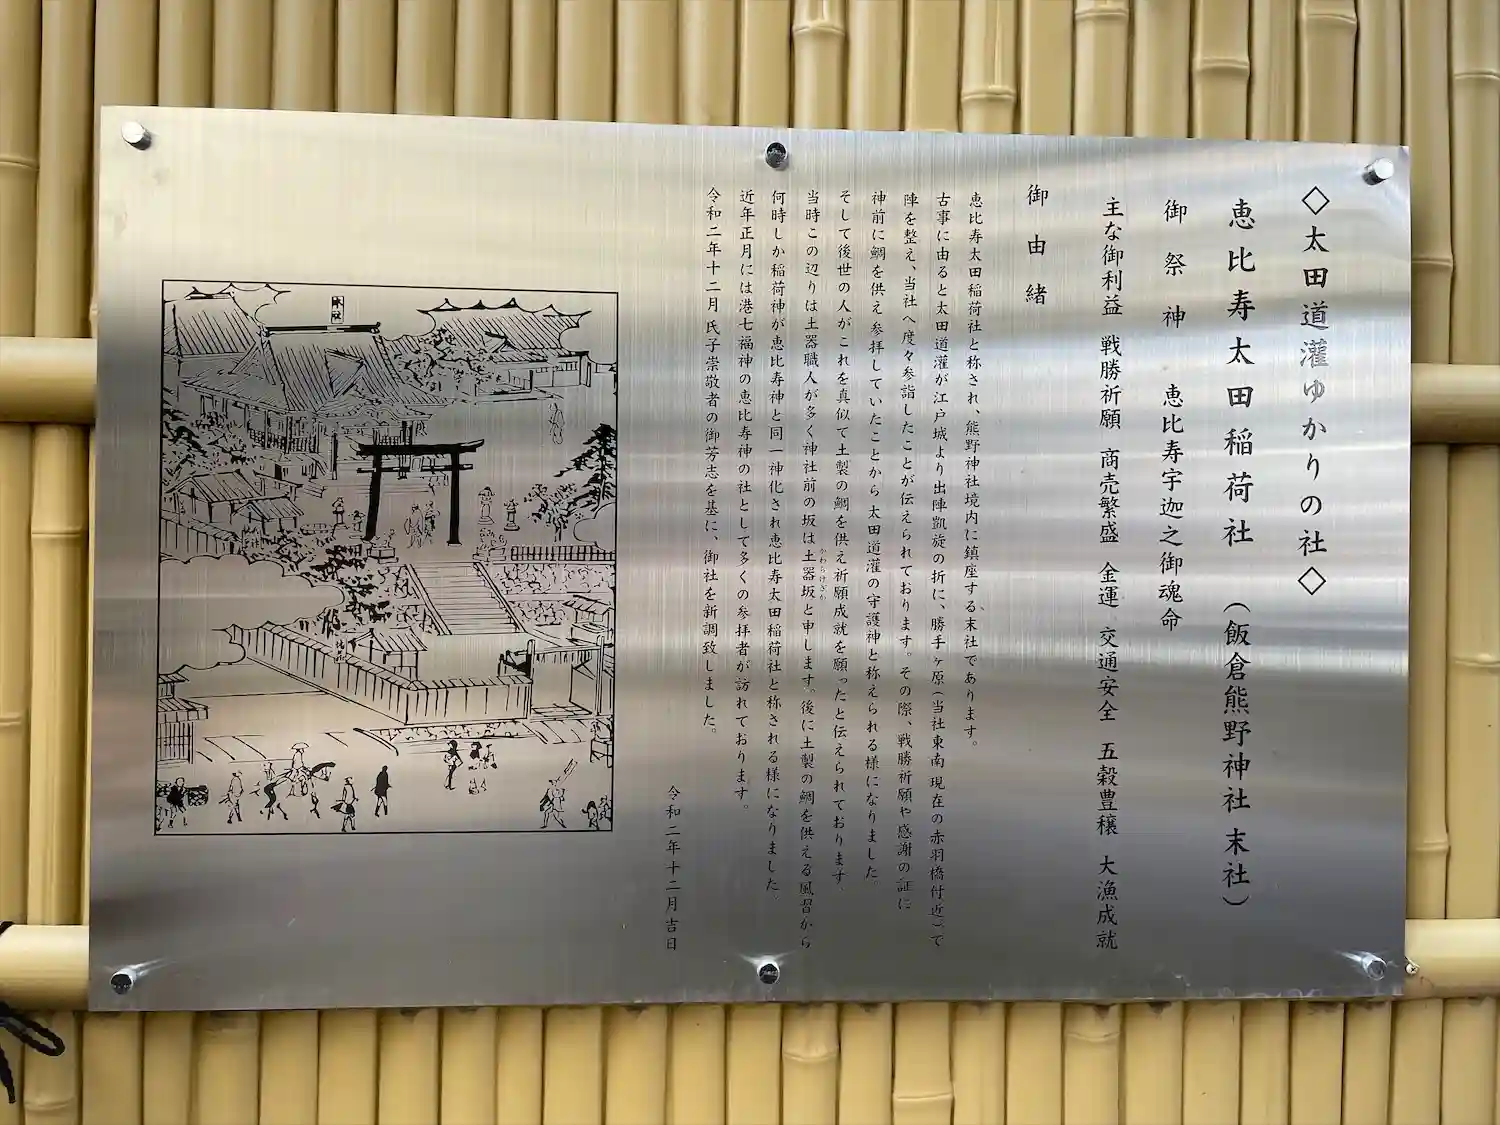 ◇太田道灌ゆかりの社◇
恵比寿太田稲荷社（飯倉熊野神社 末社）
御祭神　恵比寿宇迦之御魂命
主な御利益　戦勝祈願　商売繁盛　金運　交通安全　五穀豊穣　大漁成就
御由緒
恵比寿太田稲荷社と称され、熊野神社境内に鎮座する、末社であります。
古事に由ると太田道灌が江戸城より出陣凱旋の折に、勝手ヶ原（当社東南現在の赤羽橋付近）で
陣を整え、当社へ度々参詣したことが伝えられております。その際、戦勝祈願や感謝の証に
神前に鯛を供え参拝していたことから太田道灌の守護神と称えられる様になりました。
そして後世の人がこれを真似て土製の鯛を供え祈願成就を願ったと伝えられております。
当時この辺りは土器職人が多く神社前の坂は土器坂と申します。後に土製の鯛を供える風習から
かわらけざか
何時しか稲荷神が恵比寿神と同一神化され恵比寿太田稲荷社と称される様になりました
近年正月には港七福神の恵比寿神の社として多くの参拝者が訪れております。
令和二年十二月氏子崇敬者の御芳志を基に、御社を新調致しました。
令和二年十二月吉日
本社